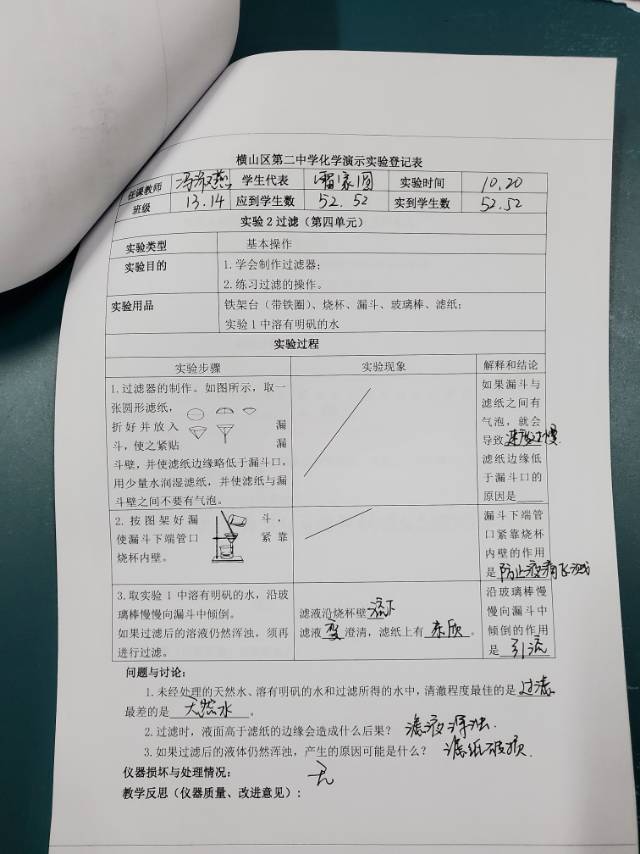 横山区第二中学化学演示实验登记表
任课教师 冯淑燕 学生代表 家圆 实验时间 10.20
班级 13.14 应到学生数 52.52 实到学生数 52.52
实验2过滤（第四单元）
实验类型 基本操作
实验目的 1.学会制作过滤器；
2.练习过滤的操作。
实验用品 铁架台（带铁圈）、烧杯、漏斗、玻璃棒、滤纸；
实验1中溶有明矾的水
实验过程
实验步骤 实验现象 解释和结论
1.过滤器的制作。如图所示，取一
张圆形滤纸，
折好并放入 漏
斗，使之紧贴 漏
斗壁，并使滤纸边缘略低于漏斗口，
用少量水润湿滤纸，并使滤纸与漏
斗壁之间不要有气泡。
如果漏斗与
滤纸之间有
气泡，就会
导致速度过慢
滤纸边缘低
于漏斗口的
原因是
2.按图架好漏 斗，
使漏斗下端管口 紧靠
烧杯内壁。
漏斗下端管
口紧靠烧杯
内壁的作用
是防止液滴飞溅
3.取实验1中溶有明矾的水，沿玻
璃棒慢慢向漏斗中倾倒。
如果过滤后的溶液仍然浑浊，须再
进行过滤。
滤液沿烧杯壁流下
滤液变澄清，滤纸上有杂质。
沿玻璃棒慢
慢向漏斗中
倾倒的作用
是引流
问题与讨论：
1.未经处理的天然水、溶有明矾的水和过滤所得的水中，清澈程度最佳的是过滤
最差的是天然水。
2.过滤时，液面高于滤纸的边缘会造成什么后果？滤液浑浊.
3.如果过滤后的液体仍然浑浊，产生的原因可能是什么？滤纸破损.
仪器损坏与处理情况： 无
教学反思（仪器质量、改进意见）：